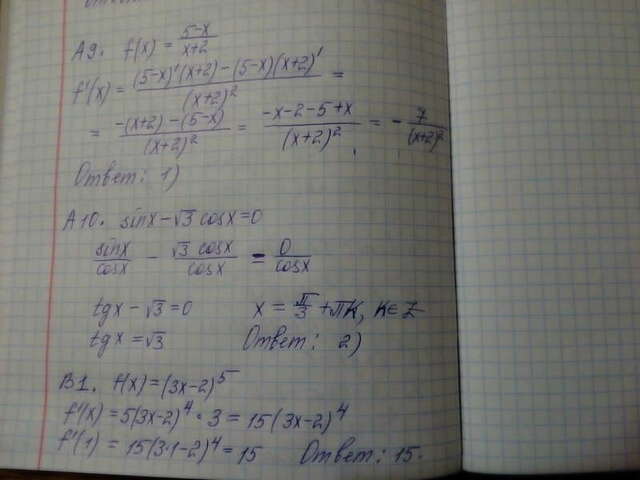 А9. f(x) = (5-x)/(x+2)
f'(x) = ((5-x)'(x+2) - (5-x)(x+2)')/(x+2)² =
= (-(x+2) - (5-x))/(x+2)² = (-x-2-5+x)/(x+2)² = -7/(x+2)²
Ответ: 1)
А10. sinx - √3 cosx = 0
sinx/cosx - √3 cosx/cosx = 0/cosx
tgx - √3 = 0 x = π/3 + πk, k∈Z
tgx = √3 Ответ: 2)
В1. f(x) = (3x-2)⁵
f'(x) = 5(3x-2)⁴ · 3 = 15(3x-2)⁴
f'(1) = 15(3·1-2)⁴ = 15 Ответ: 15.